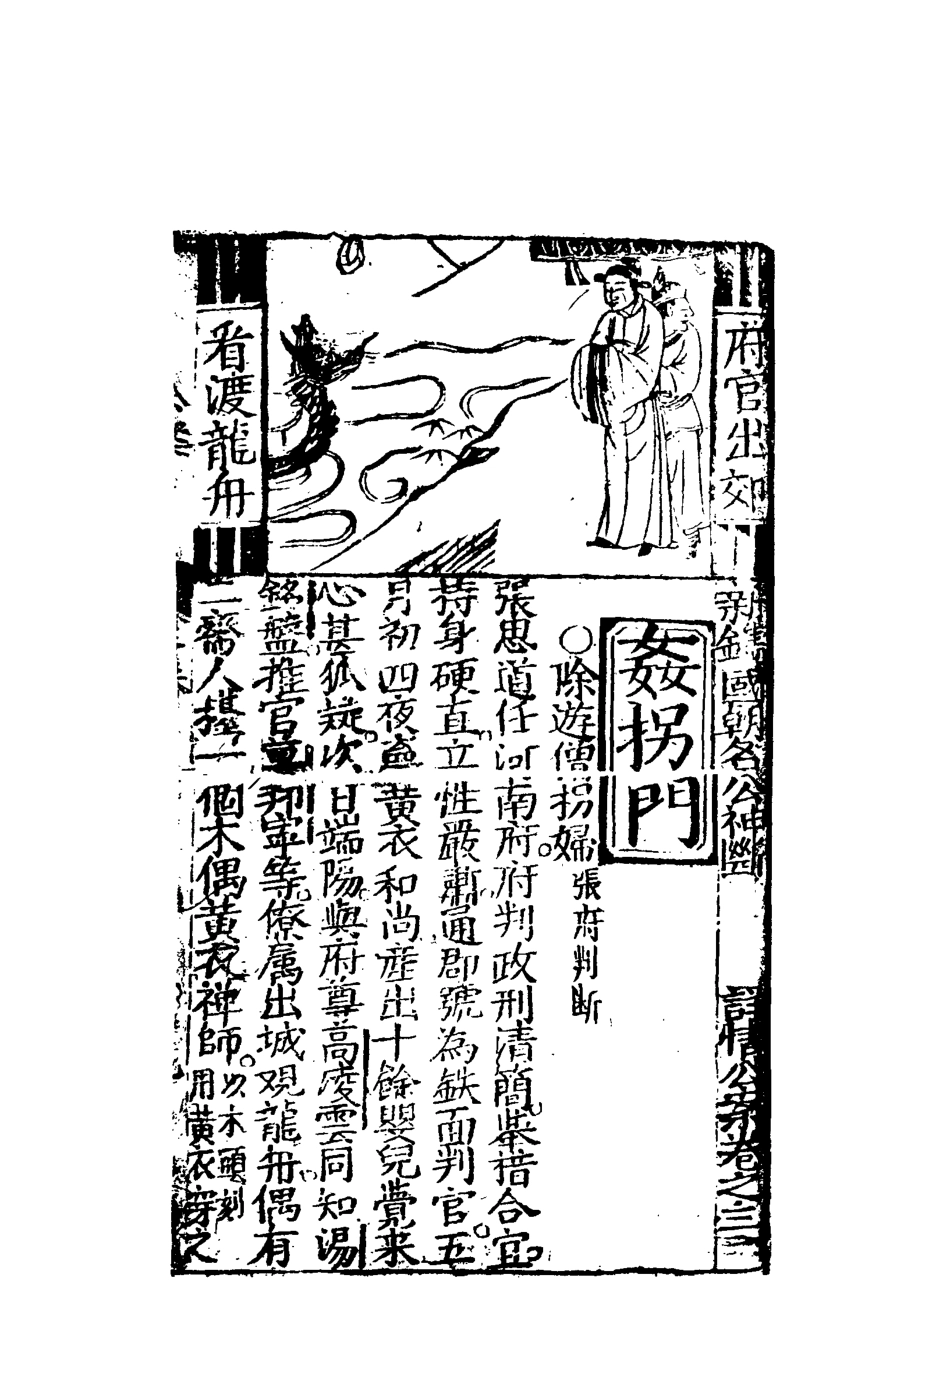 府官出郊
看渡龍舟
新鍥國朝名公神斷詳情公案卷之三
姦拐門
○除遊僧拐婦 張府判斷
張思道任河南府府判政刑清簡舉措合宜
持身硬直立性嚴肅通郡號為鉄面判官五
月初四夜夢黃衣和尚産出十餘嬰兒覺来
心甚狐疑次日端陽與府尊高凌雲同知湯
銘盤推官章邦寧等僚属出城观龍舟偶有
一齋人擡一個木偶黃衣禅師以木頭刻
用黃衣穿之